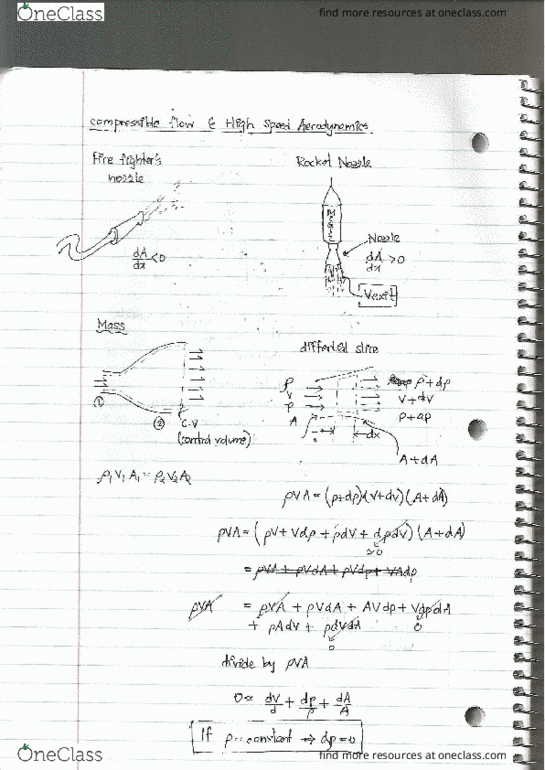 OneClass
find more resources at oneclass.com
compressible flow & High Speed Aerodynamics
Fire fighter's nozzle
Rocket Nozzle
dA/dx < 0
Nozzle
dA/dx > 0
Vexit
Mass
differtial slice
ρ
V
P
A
ρ + dρ
V + dV
P + dP
dx
A + dA
①
②
C.V
(control volume)
ρ₁V₁A₁ = ρ₂V₂A₂
ρVA = (ρ+dρ)(V+dV)(A+dA)
ρVA = (ρV + Vdρ + ρdV + dρdV)(A+dA)
≈0
= ρVA + ρVdA + ρVdρ + VAdρ
ρVA = ρVA + ρVdA + AVdρ + VdρdA
0
+ ρAdV + ρdVdA
0
divide by ρVA
0 = dV/d + dρ/ρ + dA/A
If ρ = constant → dρ = 0
OneClass
find more resources at oneclass.com